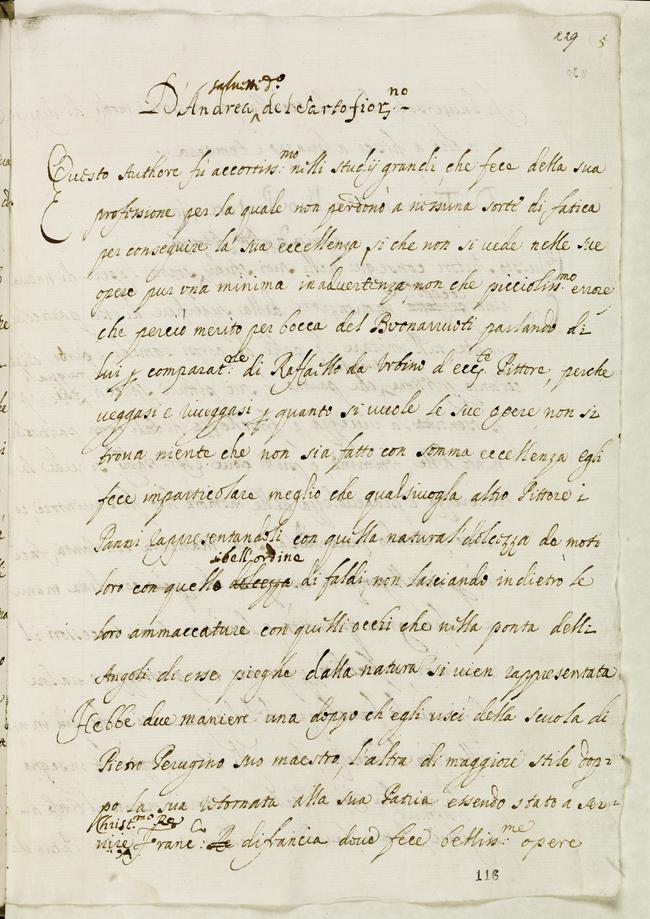 229 5
D'Andrea del Sarto fior.no
Questo Authore fù accortiss:mo nelli studij grandi, che fece della sua
professione per la quale non perdonò à nissuna sorte di fatica
per conseguire la sua eccellenza, si che non si vede nelle sue
opere pur una minima inadvertenza, non che picciolis:mo errore
che perciò merito per bocca del Buonarruoti parlando di
lui comparat.re di Raffaello da Urbino d'ecc.te Pittore, perche
veggasi e riveggasi quanto si vuole le sue opere non si
trova niente che non sia fatto con somma eccellenza egli
fece imparticolare meglio che qualsivogla altro Pittore i
Panni rappresentandoli con quella natural dolcezza de moti
bell'ordine
loro con quello dolcezza di faldi, non lasciando indietro le
loro ammaccature con quelli occhi che nella ponta delli
Angoli di esse pieghe dalla natura si vien rappresentata
Hebbe due maniere una doppo ch'egli uscì della scuola di
Pietro Perugino suo maestro, l'altra di maggiore stile dop-
po la sua ritornata alla sua Patria essendo stato a ser-
Christ:mo Re
vire Franc:co Re di francia dove fece bellis:me opere
118